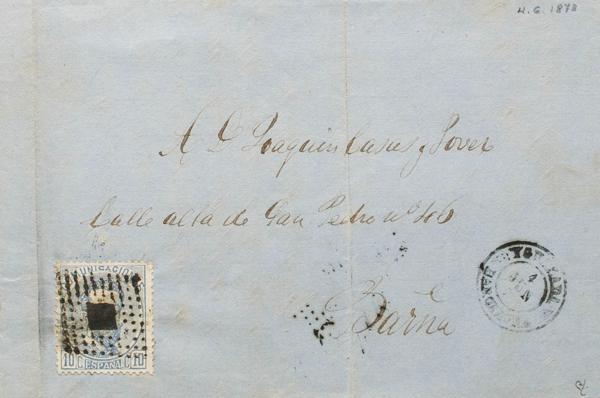 4.6.1873
A D Joaquin Casas y Jover
Calle alta de San Pedro nº 46
Barna
COMUNICACIONES
10 C. ESPAÑA C. 10
4
JUN